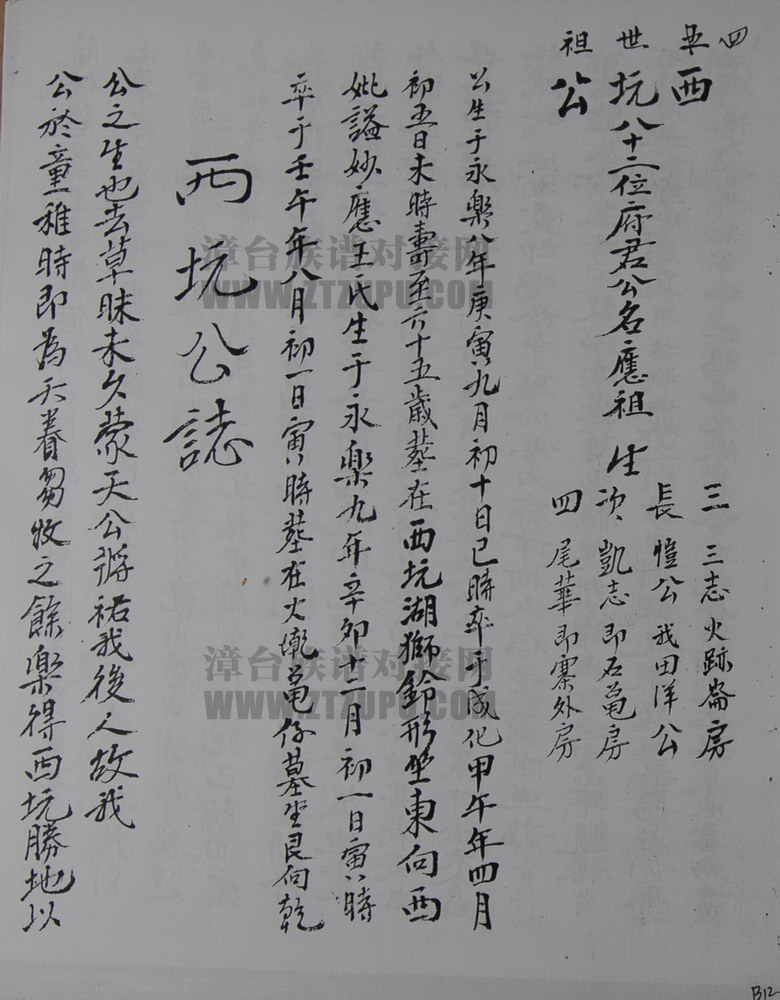 四世祖
西坑公
八十二位府君公名應祖 生
三 三志火跡崙房
長 愷公我田洋公
次 凱志即石龜房
四 尾華即寨外房
公生于永樂八年庚寅九月初十日巳時卒于成化甲午年四月
初五日未時壽至六十五歲墓在西坑湖獅鈴形坐東向西
妣謚妙應王氏生于永樂九年辛卯十二月初一日寅時
卒于壬午年八月初一日寅時墓在火龜仔墓坐艮向乾
西坑公誌
公之生也去草昧未久蒙天公祐我後人故我
公於童稚時即為天眷芻牧之餘樂得西坑勝地以
漳台族谱对接网
WWW.ZTZUPU.COM
漳台族谱对接网
WWW.ZTZUPU.COM
B12